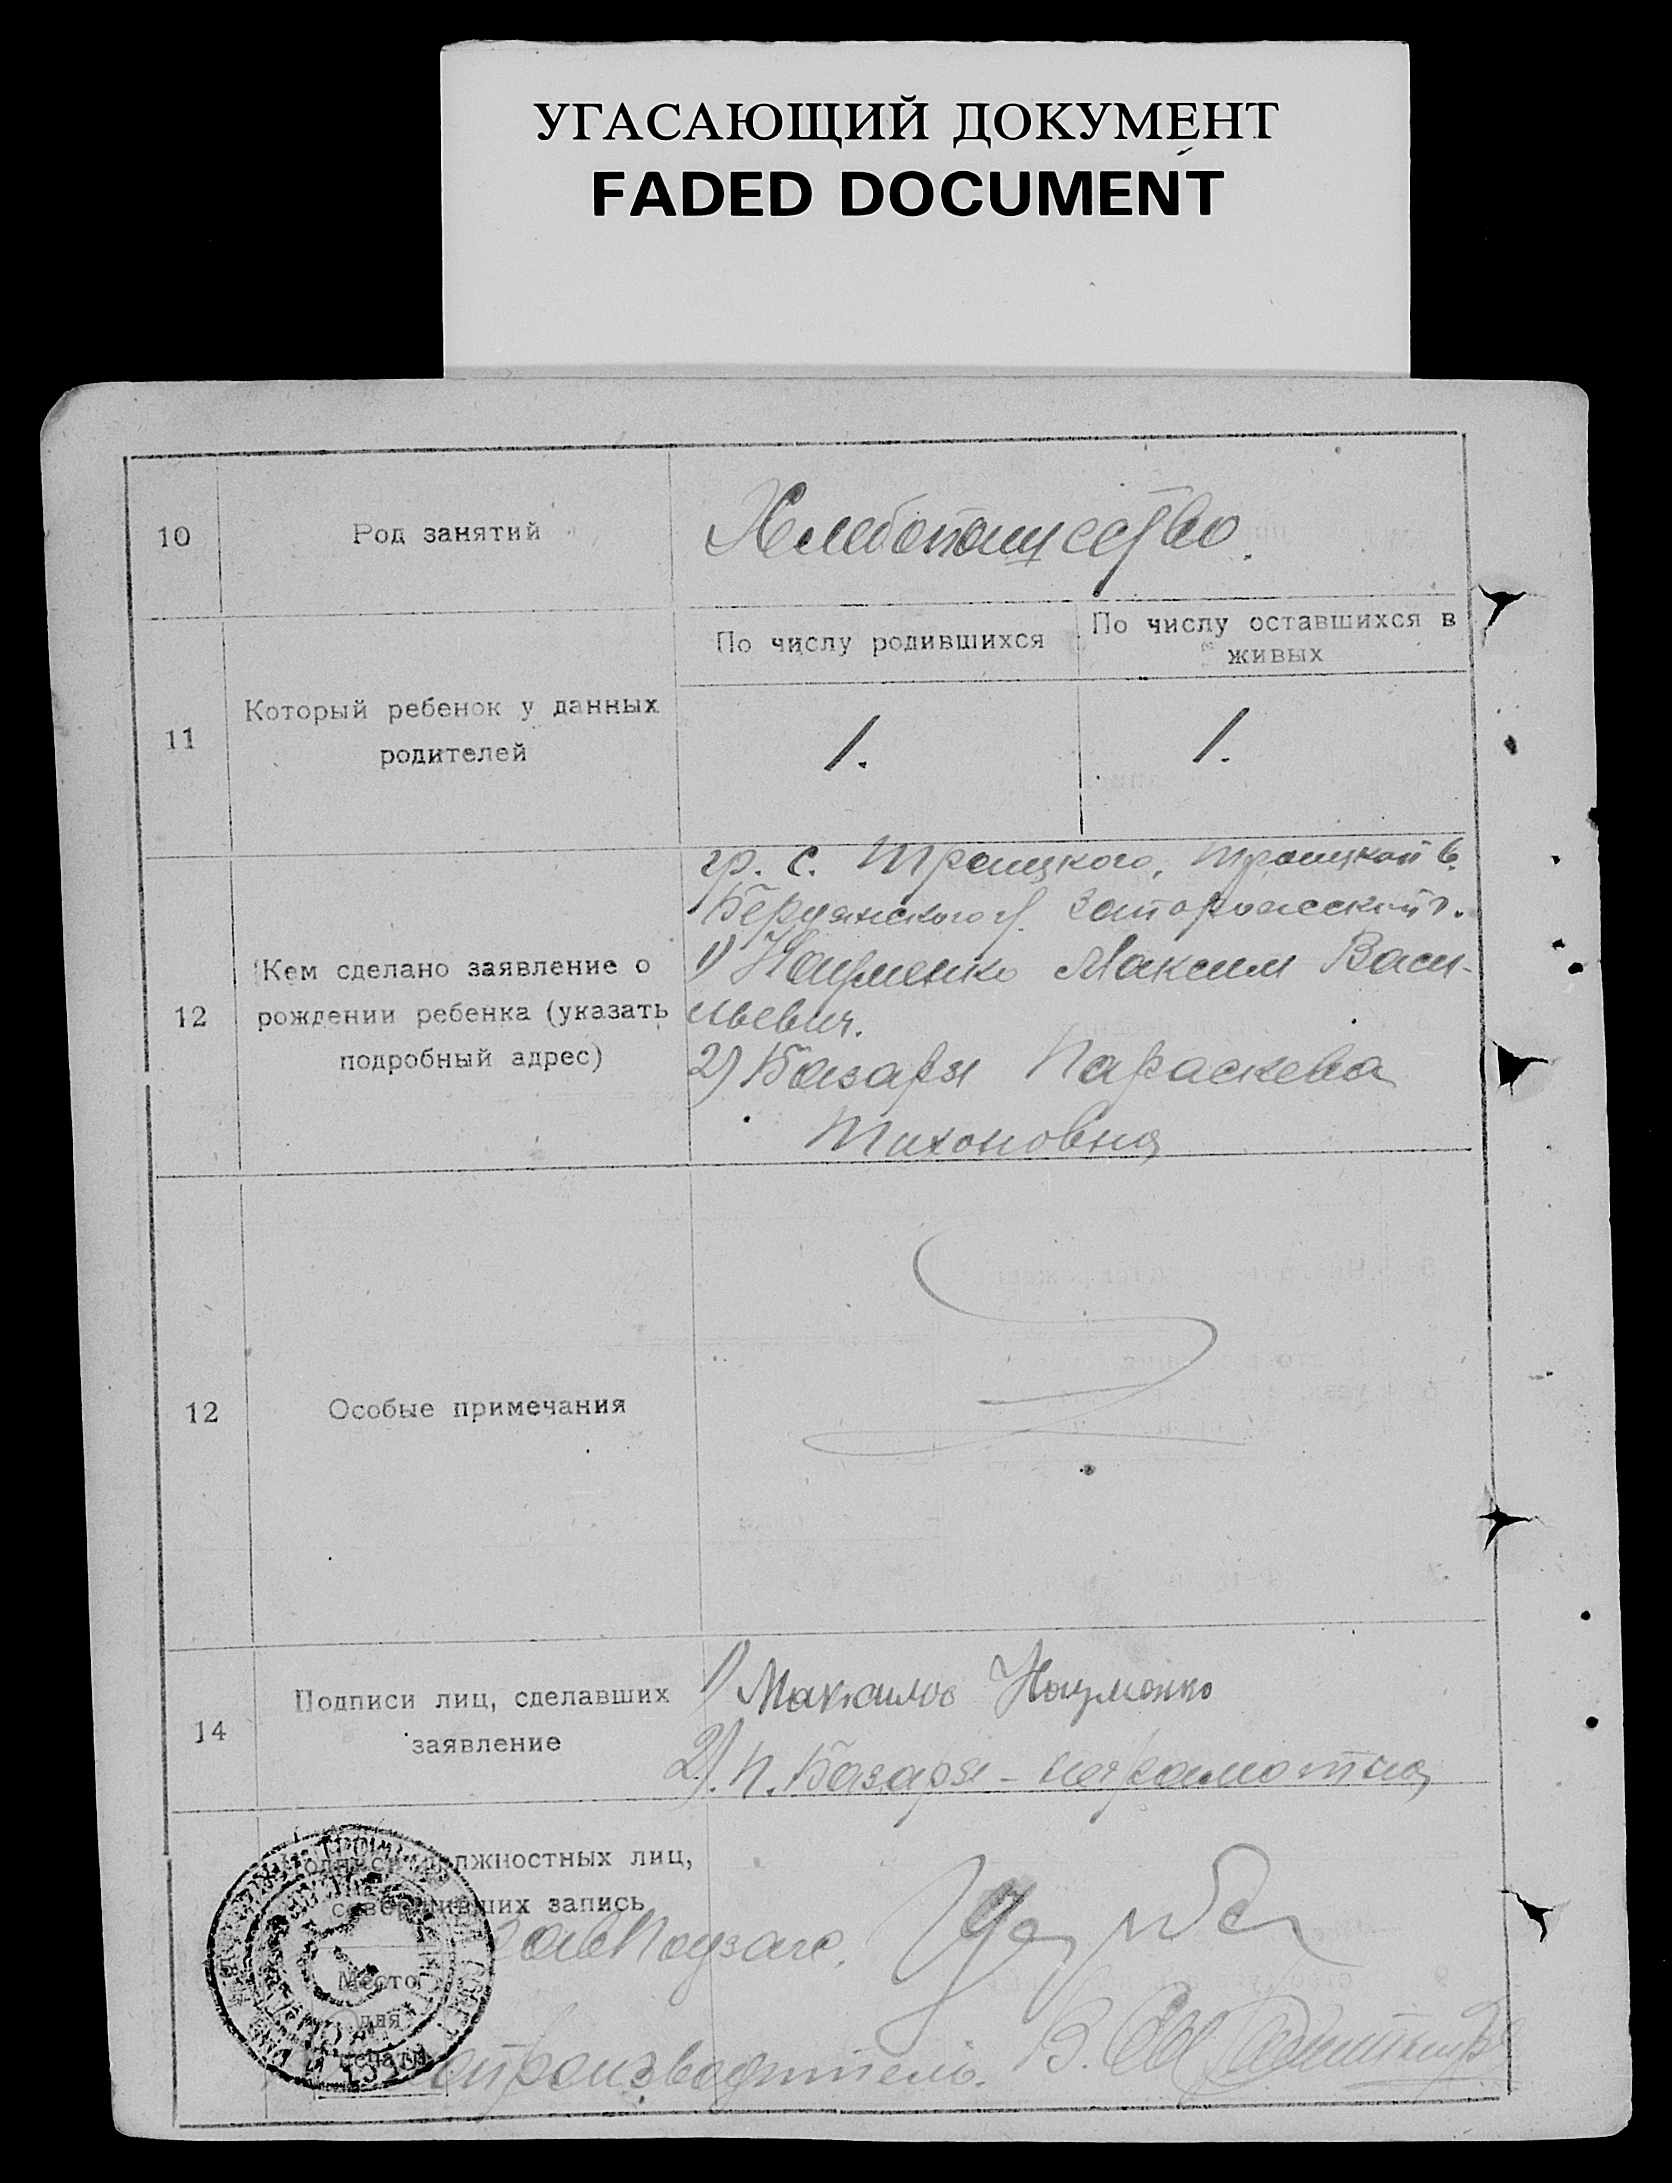 УГАСАЮЩИЙ ДОКУМЕНТ
FADED DOCUMENT
10
Род занятий
Хлебопашество.
11
Который ребенок у данных
родителей
По числу родившихся
По числу оставшихся в
живых
1.
1.
12
Кем сделано заявление о
рождении ребенка (указать
подробный адрес)
гр. с. Троицкого, Троицкой в.
Бердянского у. Запорожской г.
1) Науменко Максим Васи-
льевич.
2) Базаря Параскева
Тихоновна
12
Особые примечания
14
Подписи лиц, сделавших
заявление
1) Науменко
2). П. Базаря - неграмотна
Подписи должностных лиц,
совершивших запись
ЗавПодзаг.
Место
для
печати
производитель. В.